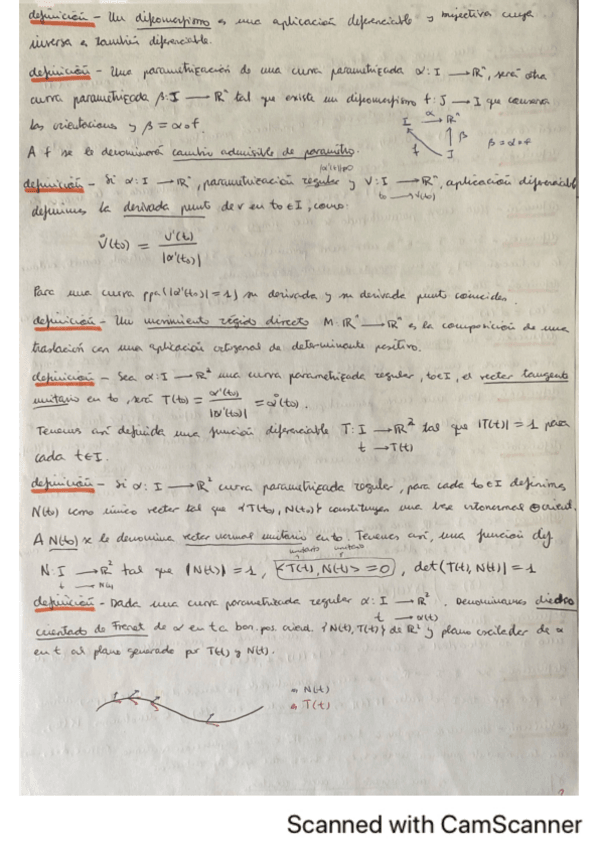 definición - Un difeomorfismo es una aplicación diferenciable y biyectiva cuya
inversa es también diferenciable.
definición - Una parametrización de una curva parametrizada α: I → ℝⁿ, será otra
curva parametrizada β: I → ℝⁿ tal que existe un difeomorfismo f: J → I que conserva
las orientaciones y β = α∘f.
I →α ℝⁿ
f ↑β β = α∘f
I
A f se le denominará cambio admisible de parámetro.
|α'(t)|≠0
definición - Si α: I → ℝⁿ, parametrización regular y V: I → ℝⁿ, aplicación diferenciable
t₀ → V(t₀)
definimos la derivada punto de v en t₀ ∈ I, como:
V̊(t₀) = V'(t) / |α'(t₀)|
Para una curva ppa (|α'(t₀)| = 1) su derivada y su derivada punto coinciden.
definición - Un movimiento rígido directo M: ℝⁿ → ℝⁿ es la composición de una
traslación con una aplicación ortogonal de determinante positivo.
definición - Sea α: I → ℝ² una curva parametrizada regular, t₀ ∈ I, el vector tangente
unitario en t₀, será T(t₀) = α'(t₀) / |α'(t₀)| = α̊(t₀).
Tenemos así definida una función diferenciable T: I → ℝ² tal que |T(t)| = 1 para
t → T(t)
cada t ∈ I.
definición - Si α: I → ℝ² curva parametrizada regular, para cada t₀ ∈ I definimos
N(t₀) como único vector tal que {T(t₀), N(t₀)} constituyen una base ortonormal ⊕ orient.
A N(t₀) se le denomina vector normal unitario en t₀. Tenemos así, una función dif
unitario unitario
N: I → ℝ² tal que |N(t)| = 1, <T(t), N(t)> = 0, det(T(t), N(t)) = 1
t → N(t)
definición - Dada una curva parametrizada regular α: I → ℝ². Denominamos diedro
t → α(t)
orientado de Frenet de α en t a b.on.pos. orient. {N(t), T(t)} de ℝ² y plano oscilador de α
en t al plano generado por T(t) y N(t).
→ N(t)
→ T(t)
2
Scanned with CamScanner